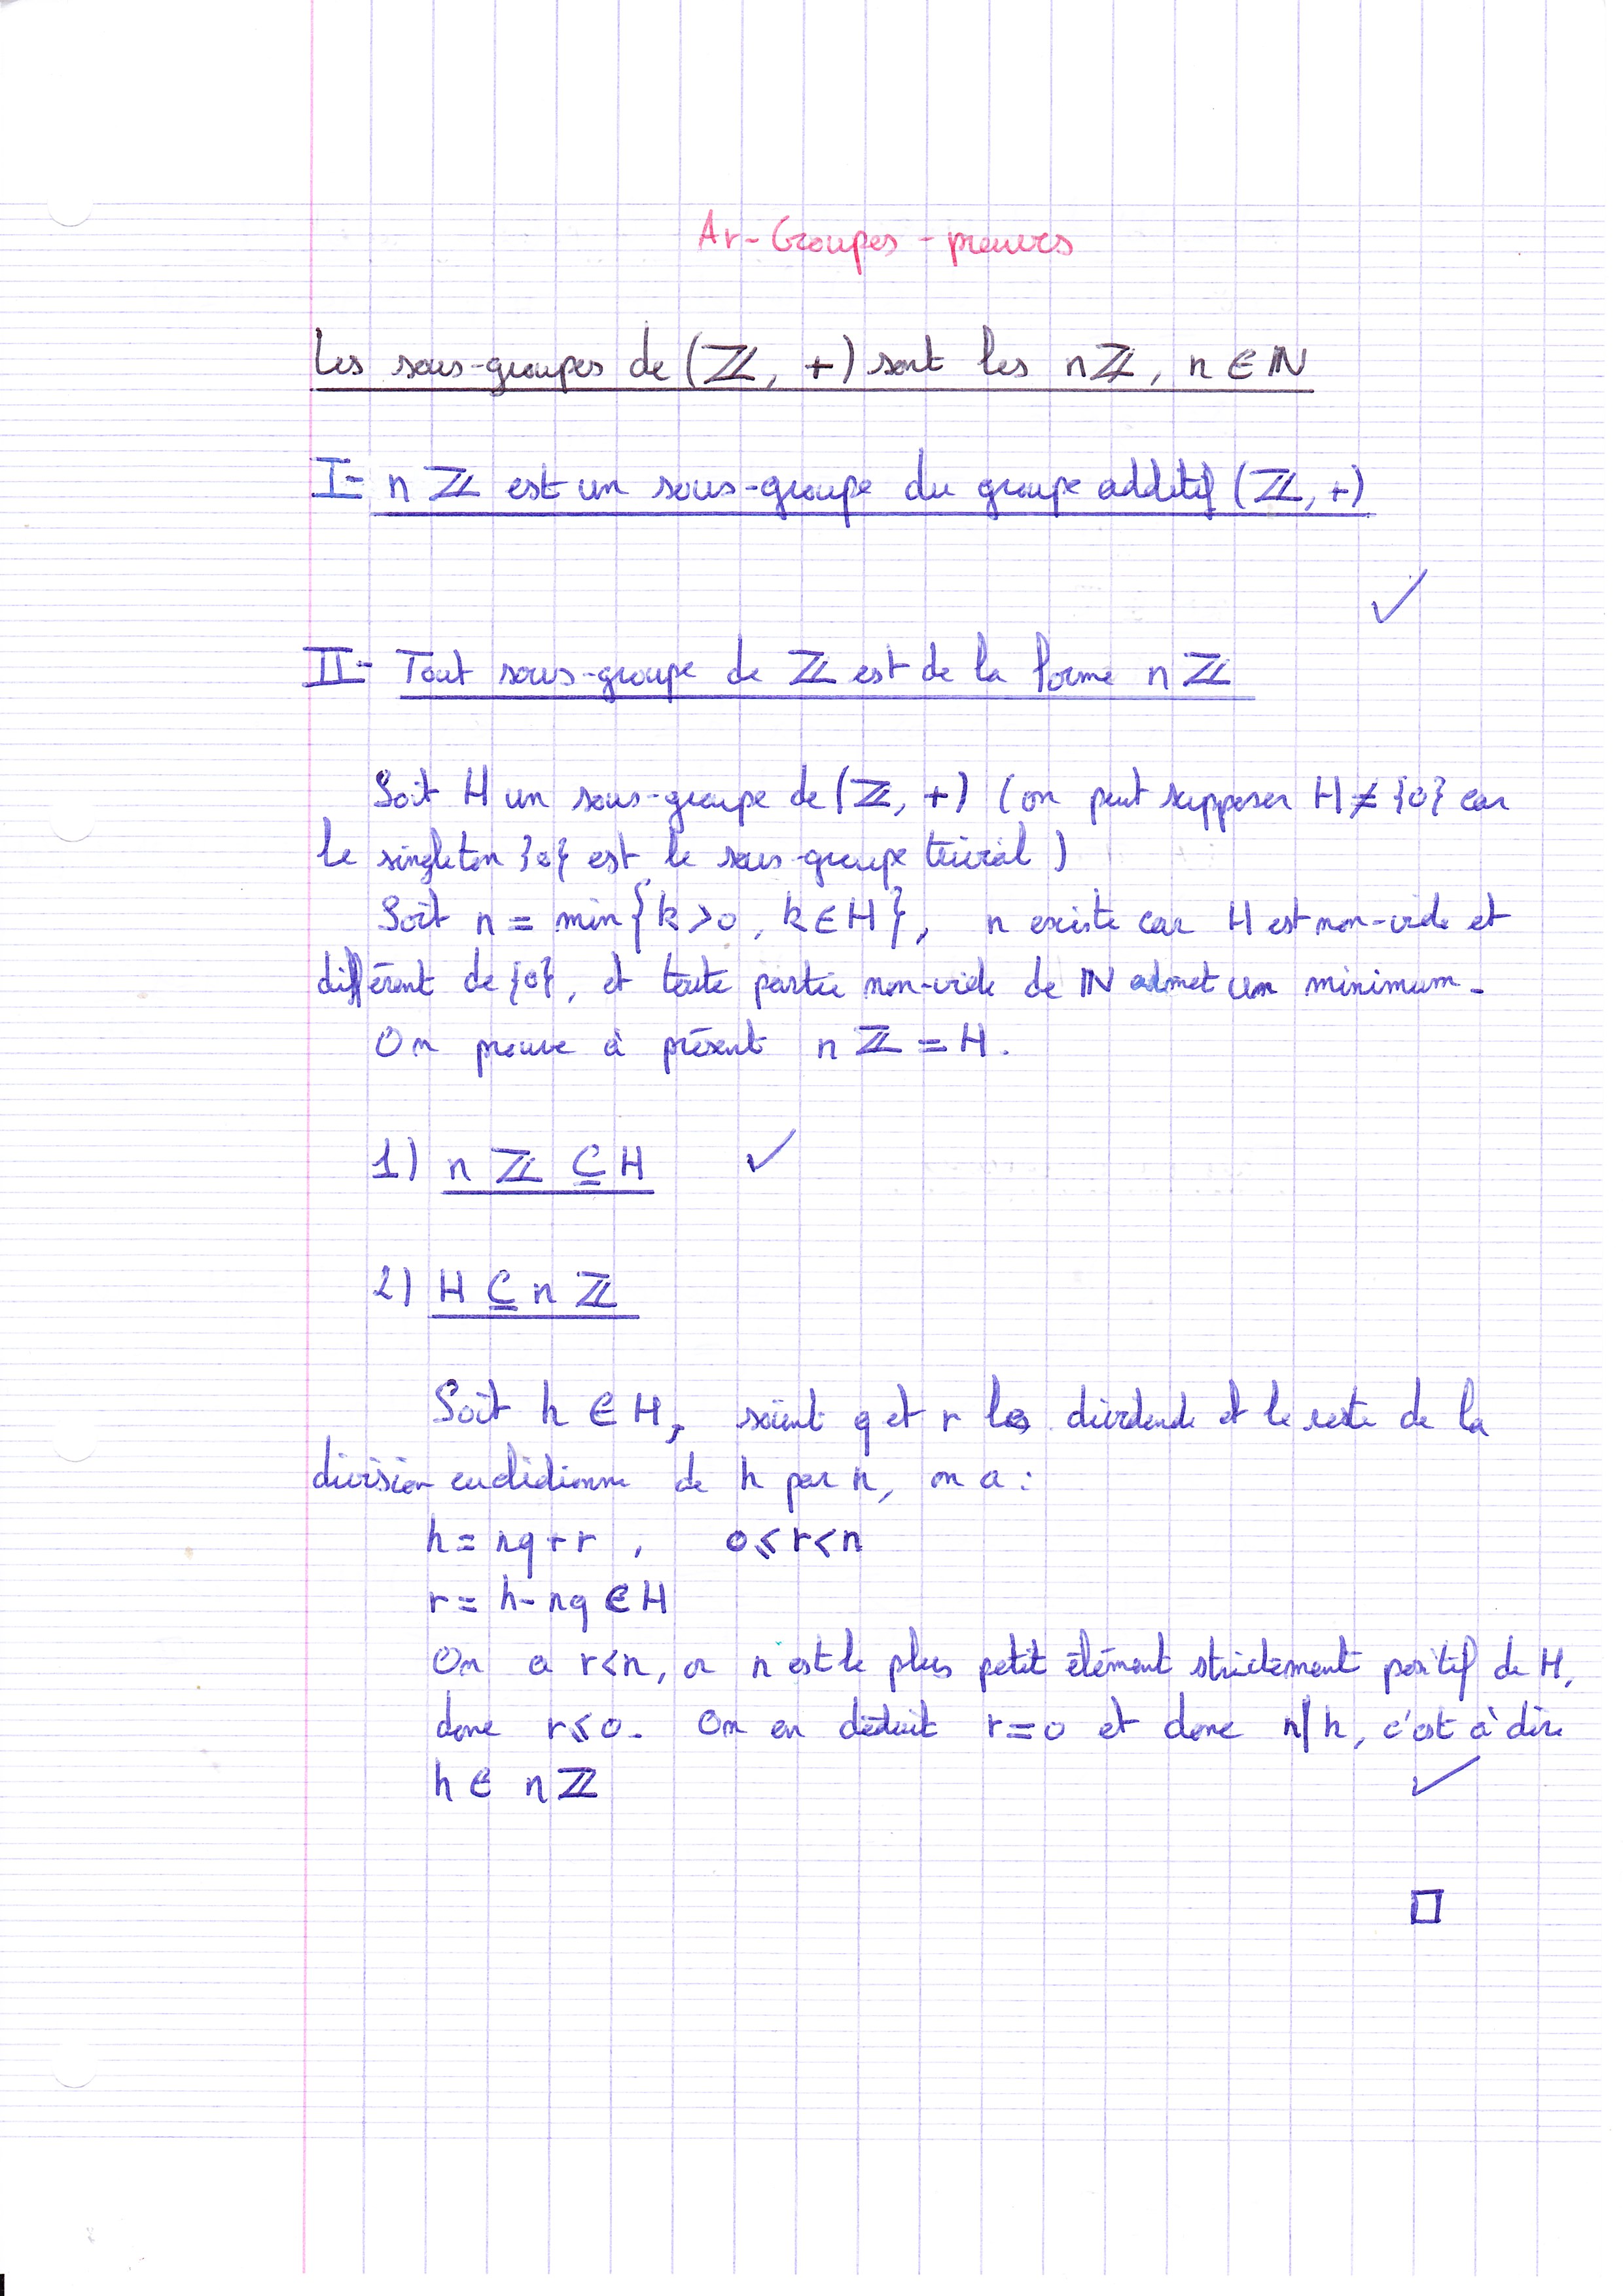 Ar-Groupes-preuves
Les sous-groupes de (ℤ, +) sont les nℤ, n ∈ ℕ
I- nℤ est un sous-groupe du groupe additif (ℤ, +)
✓
II- Tout sous-groupe de ℤ est de la forme nℤ
Soit H un sous-groupe de (ℤ, +) (on peut supposer H ≠ {0} car
le singleton {0} est le sous-groupe trivial)
Soit n = min{k > 0, k ∈ H}, n existe car H est non-vide et
différent de {0}, et toute partie non-vide de ℕ admet un minimum.
On preuve à présent nℤ = H.
1) nℤ ⊆ H ✓
2) H ⊆ nℤ
Soit h ∈ H, soient q et r les dividende et le reste de la
division euclidienne de h par n, on a :
h = nq + r , 0 ⩽ r < n
r = h - nq ∈ H
On a r < n, or n est le plus petit élément strictement positif de H,
donc r ⩽ 0. On en déduit r = 0 et donc n | h, c'est à dire
h ∈ nℤ ✓
□